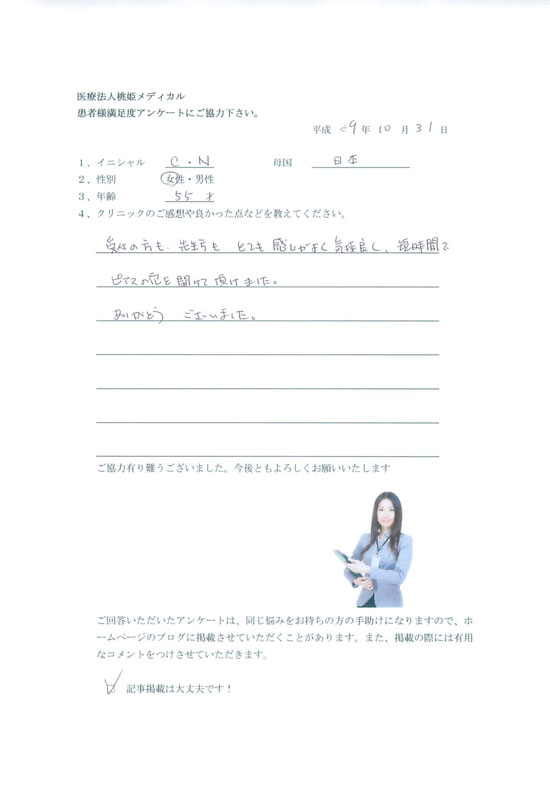 医療法人桃姫メディカル
患者様満足度アンケートにご協力下さい。
平成 29 年 10 月 31 日
1、イニシャル C・N 母国 日本
2、性別 女性・男性
3、年齢 55 才
4、クリニックのご感想や良かった点などを教えてください。
受付の方も、先生方も とても 感じがよく 気持良く、短時間で
ピアスの穴を開けて頂けました。
ありがとう ございました。
ご協力有り難うございました。今後ともよろしくお願いいたします
ご回答いただいたアンケートは、同じ悩みをお持ちの方の手助けになりますので、ホ
ームページのブログに掲載させていただくことがあります。また、掲載の際には有用
なコメントをつけさせていただきます。
記事掲載は大丈夫です！